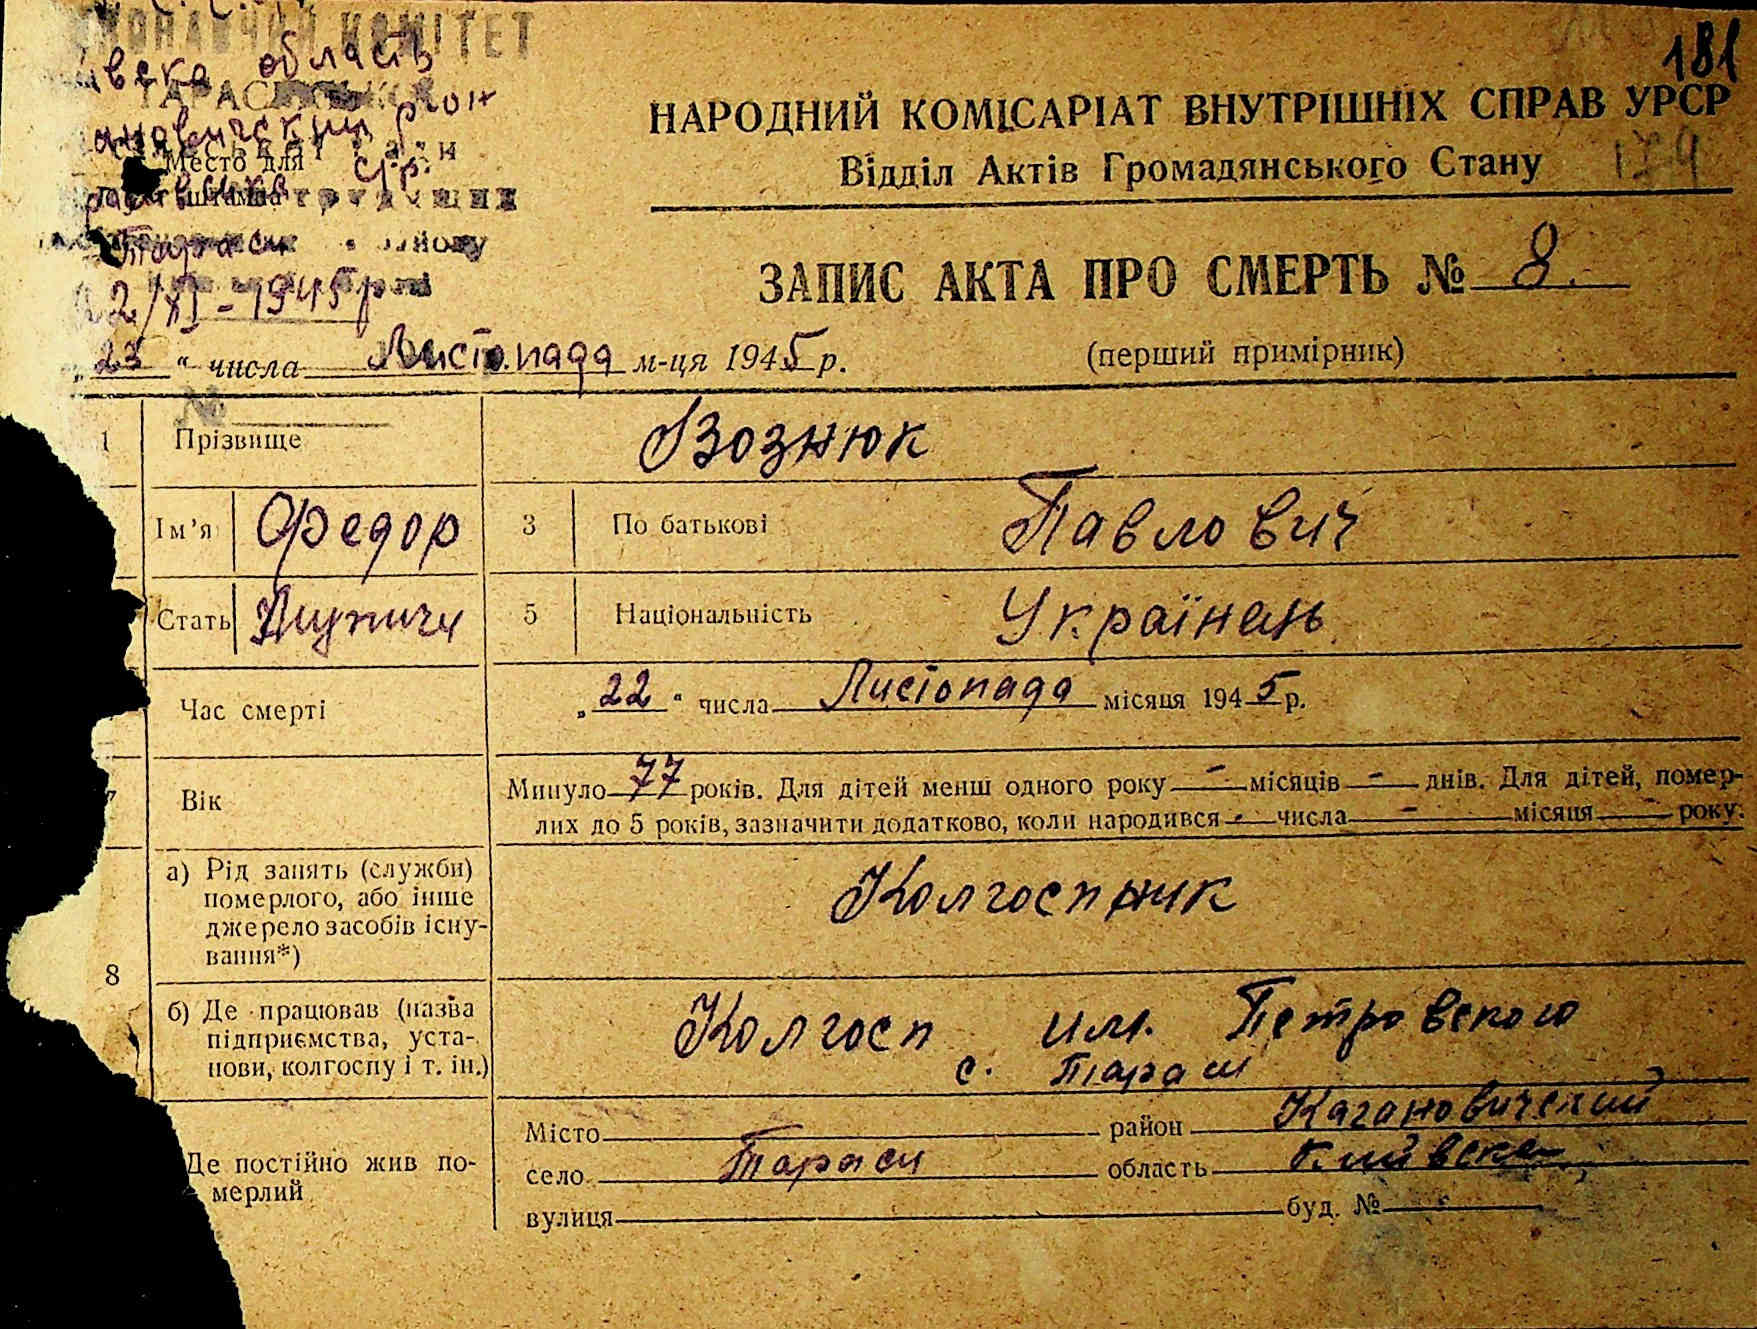 181
КОМІТЕТ
область
НАРОДНИЙ КОМІСАРІАТ ВНУТРІШНІХ СПРАВ УРСР
Место для с/р.
Відділ Актів Громадянського Стану 174
штампа
Тараси району
ЗАПИС АКТА ПРО СМЕРТЬ № 8.
22/XI-1945р
„23“ числа Листопада м-ця 1945 р. (перший примірник)
№
1 Прізвище Вознюк
Ім’я Федор 3 По батькові Павлович
Стать Мужич 5 Національність Українець
Час смерті „22“ числа Листопада місяця 1945 р.
7 Вік Минуло 77 років. Для дітей менш одного року - місяців - днів. Для дітей, помер-
лих до 5 років, зазначити додатково, коли народився - числа - місяця року.
8 а) Рід занять (служби)
померлого, або інше
джерело засобів існу-
вання*)
Колгоспник
б) Де працював (назва
підприємства, уста-
нови, колгоспу і т. ін.)
Колгосп им. Петровского
с. Тараси
Де постійно жив по-
мерлий
Місто район Кагановичский
село Тараси область Київска
вулиця буд. №